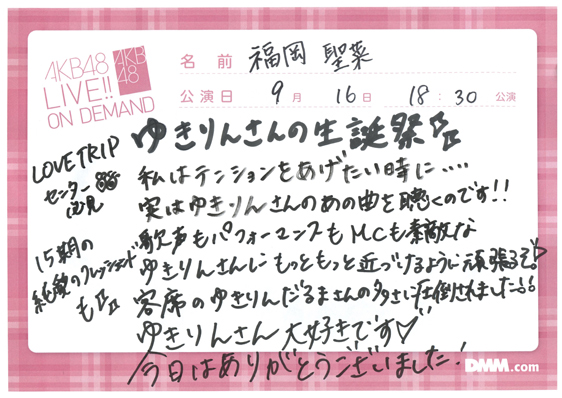 AKB48
LIVE!!
ON DEMAND
AKB
48
名前 福岡 聖菜
公演日 9月 16日 18:30 公演
ゆきりんさんの生誕祭
私はテンションをあげたい時に‥‥
実はゆきりんさんのあの曲を聴くのです!!
歌声もパフォーマンスもMCも素敵な
ゆきりんさんにもっともっと近づけるように頑張るぞ!
客席のゆきりんだるまさんの多さに圧倒されました!!
ゆきりんさん大好きです♡
今日はありがとうございました!
LOVE TRIP
センター
15期の
も
DMM.com